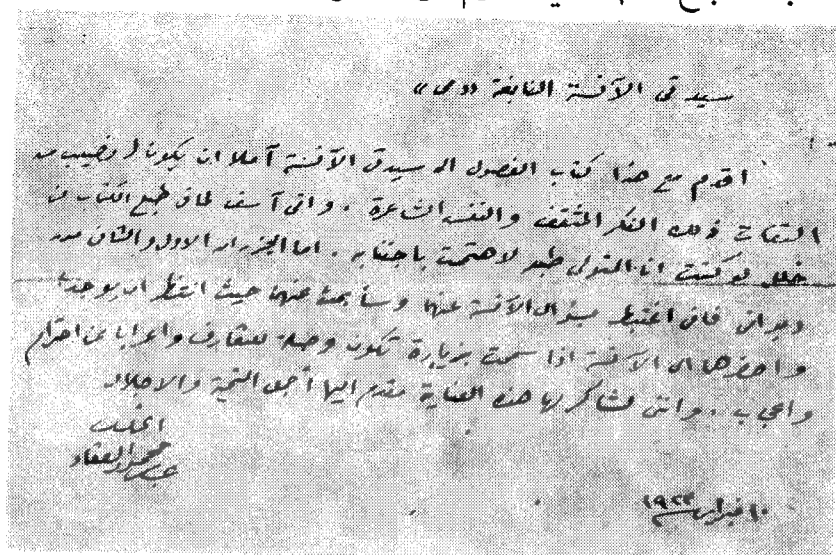 سيدتي الآنسة النابغة «مي»
اقدم مع هذا كتاب الفصول الى سيدتي الآنسة آملا ان يكون له نصيب من
التفات ذلك الفكر المثقف والنفس الشاعرة . واني آسف لما في طبع الكتاب من
خلل لو كنت انا المتولى طبعه لاهتممت باجتنابه . اما الجزءان الاول والثاني من
ديواني فاني اغتبط بسؤال الآنسة عنهما وسأبحث عنهما حيث انتظر ان يوجدا
واحضرهما الى الآنسة اذا سمحت بزيارة تكون وصلة للتعارف واعرابا عن احترام
واعجاب . وانني لشاكر لها هذه العناية مقدم اليها أجمل التحية والاجلال
المخلص
عباس محمود العقاد
١٠ فبراير سنة